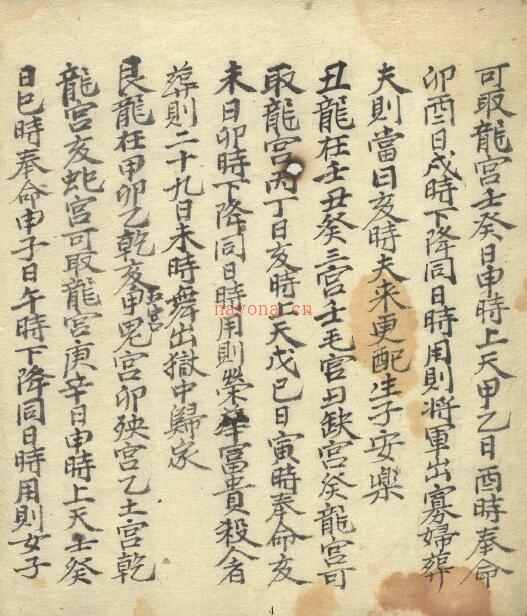 可取龍宮壬癸日申時上天甲乙日酉時奉命
卯酉日戌時下降同日時用則將軍出寡婦葬
夫則當日亥時夫来更配生子安樂
丑龍在壬丑癸三宮壬毛宮丑缺宮癸龍宮可
取龍宮丙丁日亥時上天戊巳日寅時奉命亥
未日卯時下降同日時用則榮華富貴殺人者
葬則二十九日未時舞出獄中歸家
艮龍在甲卯乙乾亥五宮甲鬼宮卯殃宮乙土宮乾
龍宮亥蛇宮可取龍宮庚辛日申時上天壬癸
日巳時奉命申子日午時下降同日時用則女子
nayona.cn
4